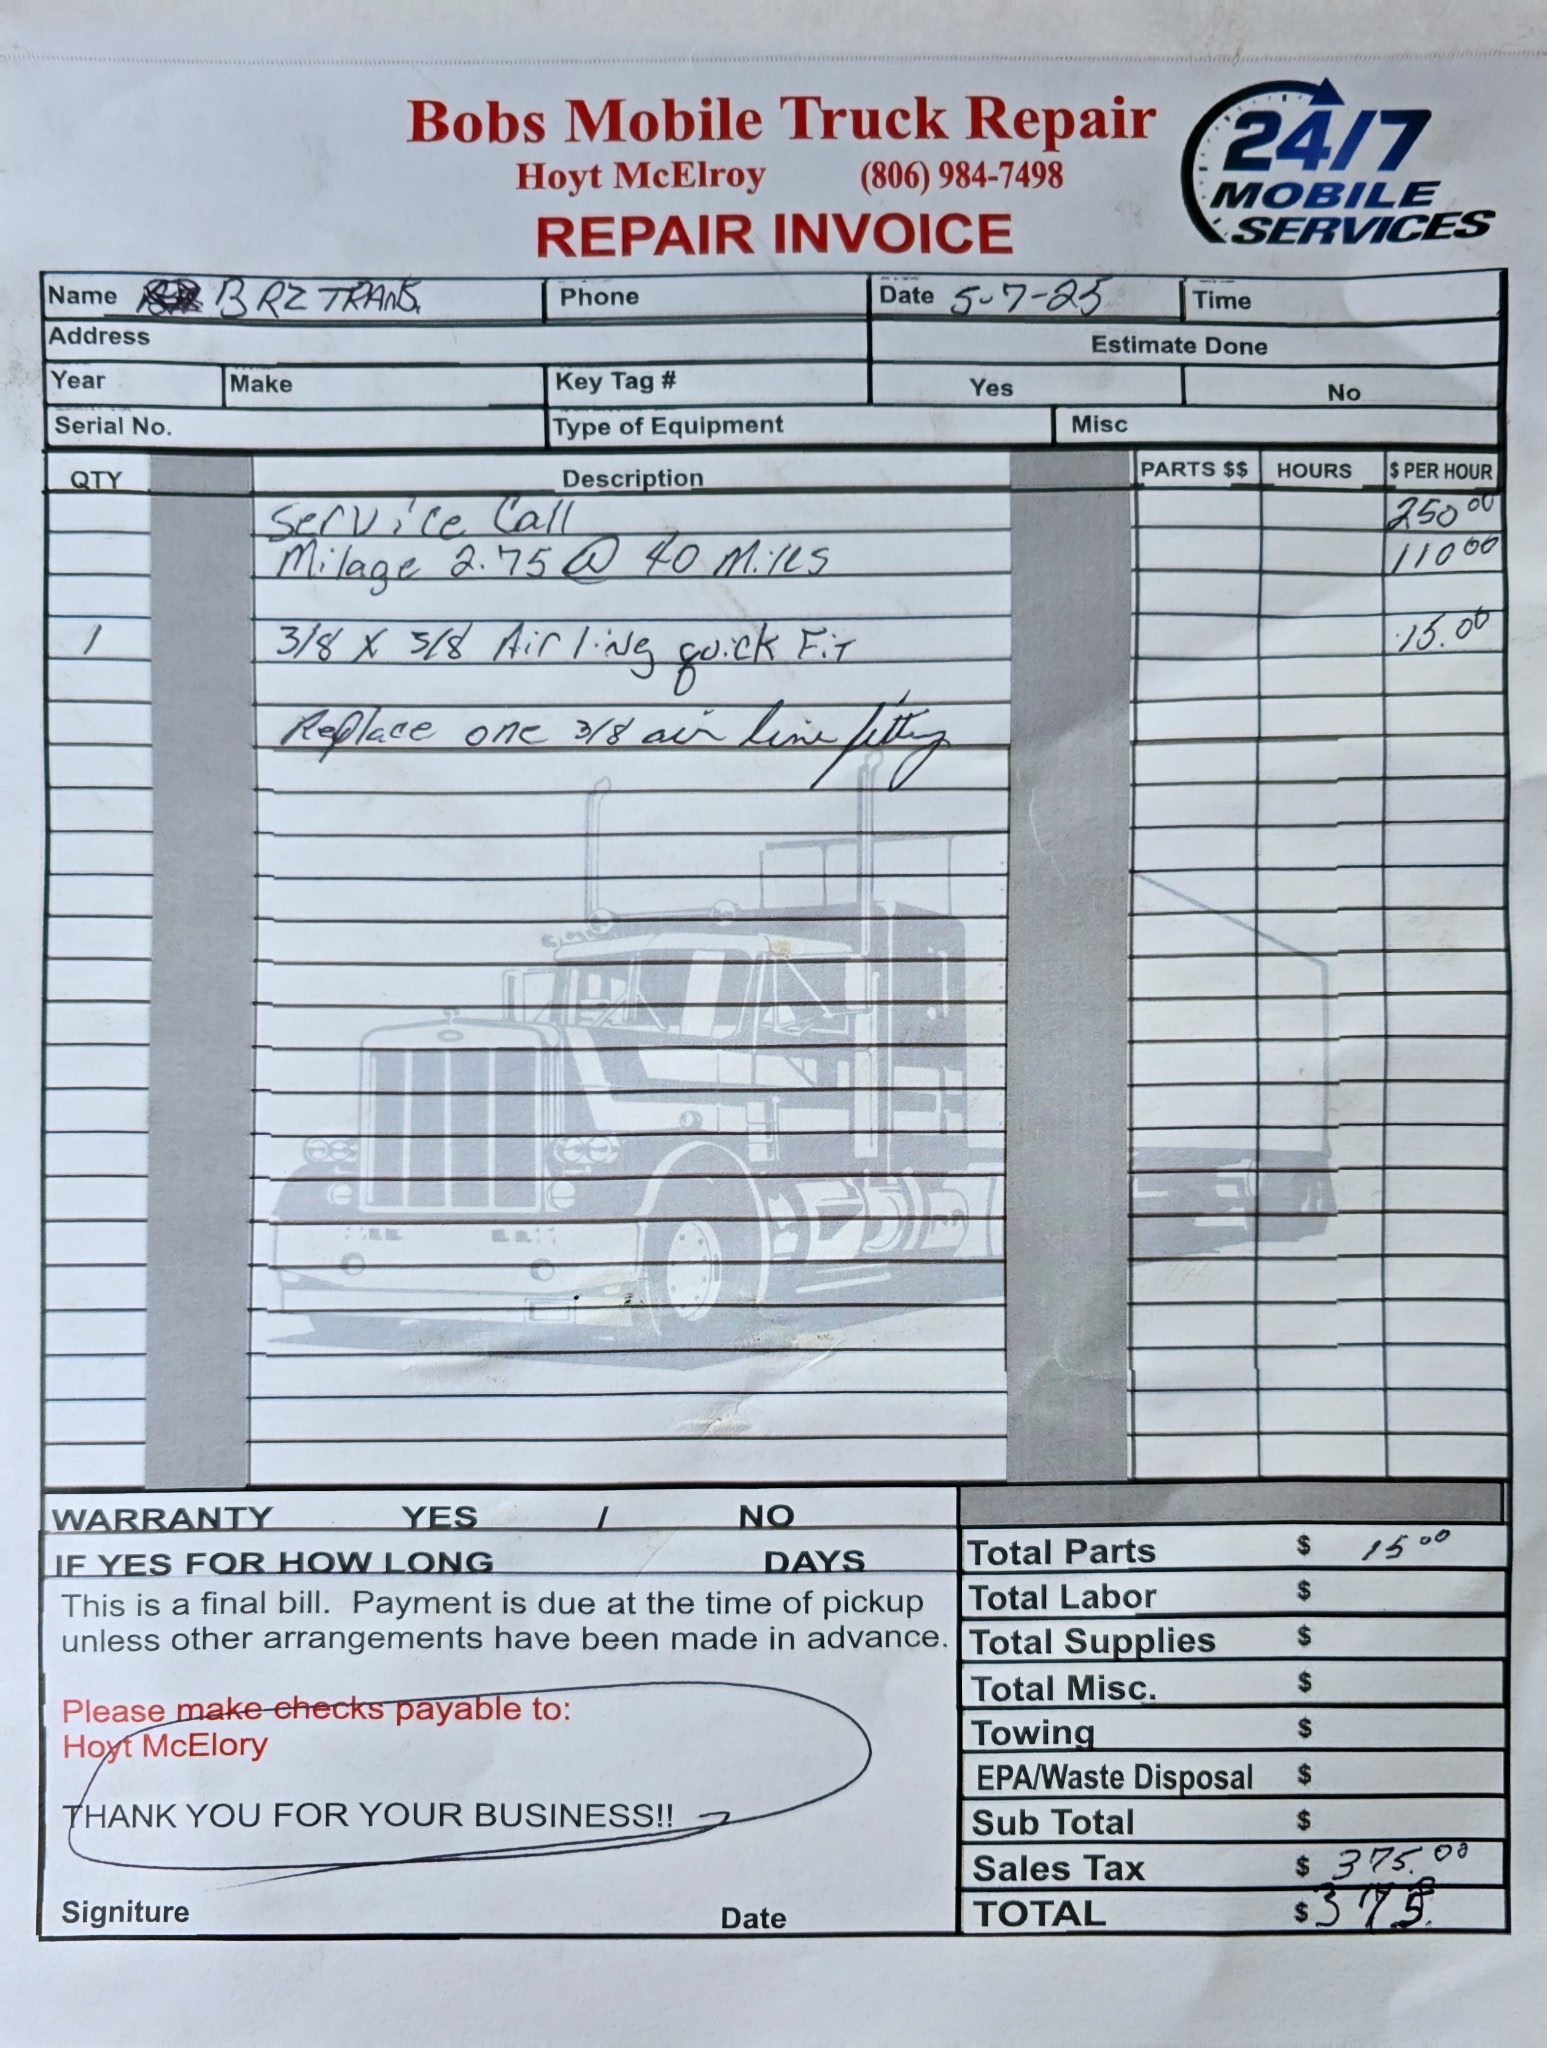 Bobs Mobile Truck Repair
Hoyt McElroy (806) 984-7498
REPAIR INVOICE
24/7
MOBILE
SERVICES
Name BRZ TRANS. Phone Date 5-7-25 Time
Address Estimate Done
Year Make Key Tag # Yes No
Serial No. Type of Equipment Misc
QTY Description PARTS $$ HOURS $ PER HOUR
Service Call 250 00
Milage 2.75 @ 40 Miles 110 00
1 3/8 X 3/8 Air ling quick Fit 15.00
Replace one 3/8 air line fitting
WARRANTY YES / NO
IF YES FOR HOW LONG DAYS
This is a final bill. Payment is due at the time of pickup
unless other arrangements have been made in advance.
Please make checks payable to:
Hoyt McElory
THANK YOU FOR YOUR BUSINESS!!
Signiture Date
Total Parts $ 15 00
Total Labor $
Total Supplies $
Total Misc. $
Towing $
EPA/Waste Disposal $
Sub Total $
Sales Tax $ 375.00
TOTAL $ 375.